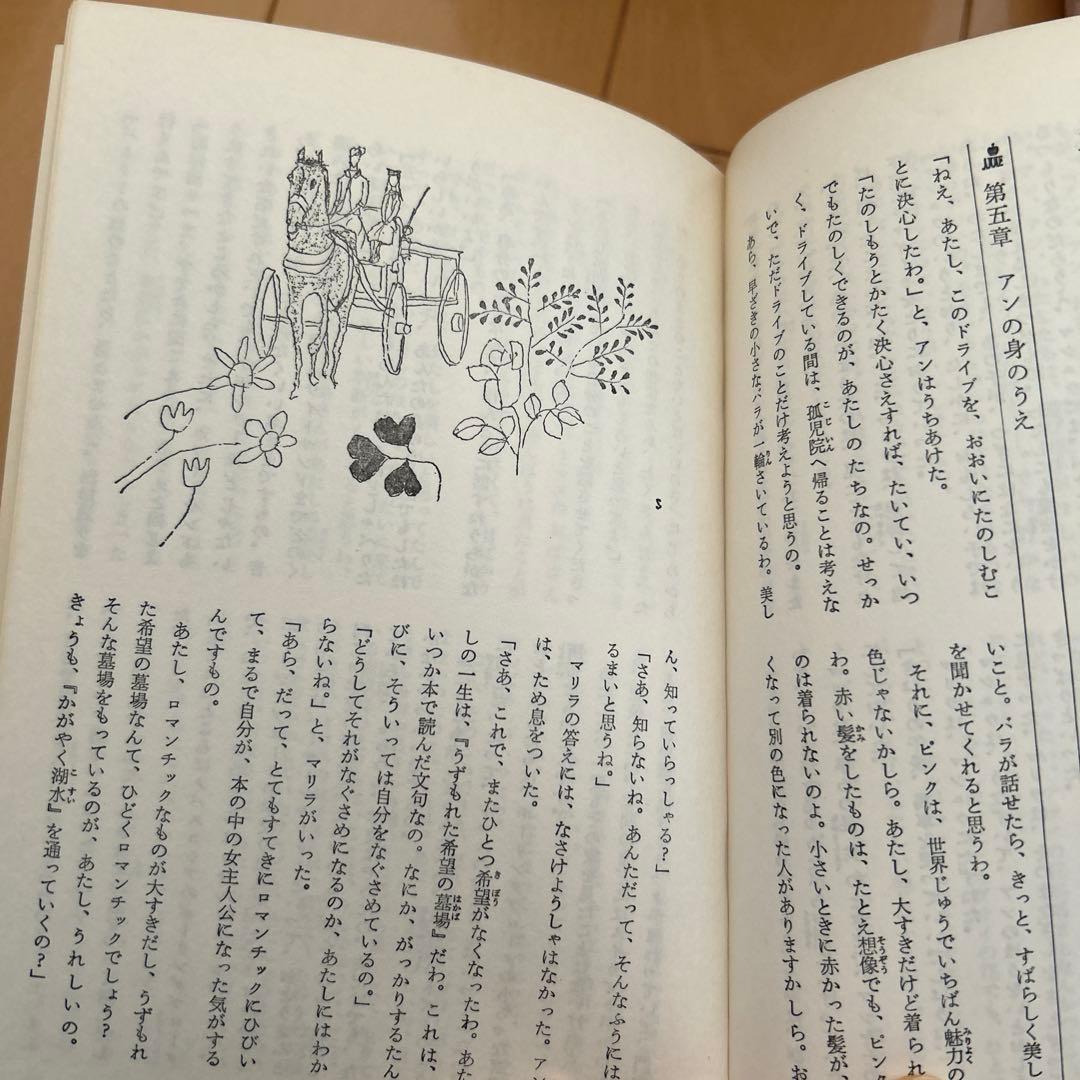 第五章　アンの身のうえ
「ねえ、あたし、このドライブを、おおいにたのしむこ
とに決心したわ。」と、アンはうちあけた。
「たのしもうとかたく決心さえすれば、たいてい、いつ
でもたのしくできるのが、あたしのたちなの。せっか
く、ドライブしている間は、孤児院へ帰ることは考えな
いで、ただドライブのことだけ考えようと思うの。
あら、早ざきの小さなバラが一輪さいているわ。美し
いこと。バラが話せたら、きっと、すばらしく美し
を聞かせてくれると思うわ。
それに、ピンクは、世界じゅうでいちばん魅力の
色じゃないかしら。あたし、大すきだけど着られ
わ。赤い髪をしたものは、たとえ想像でも、ピンク
のは着られないのよ。小さいときに赤かった髪が、
くなって別の色になった人がありますかしら。お
ん、知っていらっしゃる？」
「さあ、知らないね。あんただって、そんなふうには
るまいと思うね。」
マリラの答えには、なさけようしゃはなかった。アン
は、ため息をついた。
「さあ、これで、またひとつ希望がなくなったわ。あた
しの一生は、『うずもれた希望の墓場』だわ。これは、
いつか本で読んだ文句なの。なにか、がっかりするたん
びに、そういっては自分をなぐさめているの。」
「どうしてそれがなぐさめになるのか、あたしにはわか
らないね。」と、マリラがいった。
「あら、だって、とてもすてきにロマンチックにひびい
て、まるで自分が、本の中の女主人公になった気がする
んですもの。
あたし、ロマンチックなものが大すきだし、うずもれ
た希望の墓場なんて、ひどくロマンチックでしょう？
そんな墓場をもっているのが、あたし、うれしいの。
きょうも、『かがやく湖水』を通っていくの？」
s